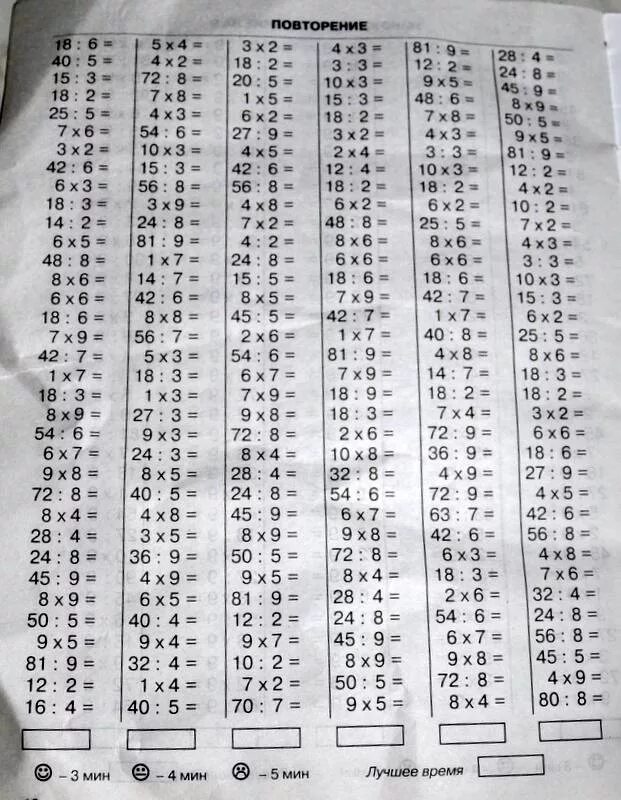 ПОВТОРЕНИЕ
18 : 6 =
40 : 5 =
15 : 3 =
18 : 2 =
25 : 5 =
7 x 6 =
3 x 2 =
42 : 6 =
6 x 3 =
18 : 3 =
14 : 2 =
6 x 5 =
48 : 8 =
8 x 6 =
6 x 6 =
18 : 6 =
7 x 9 =
42 : 7 =
1 x 7 =
18 : 3 =
8 x 9 =
54 : 6 =
6 x 7 =
9 x 8 =
72 : 8 =
8 x 4 =
28 : 4 =
24 : 8 =
45 : 9 =
8 x 9 =
50 : 5 =
9 x 5 =
81 : 9 =
12 : 2 =
16 : 4 =
5 x 4 =
4 x 2 =
72 : 8 =
7 x 8 =
4 x 3 =
54 : 6 =
10 x 3 =
15 : 3 =
56 : 8 =
3 x 9 =
24 : 8 =
81 : 9 =
1 x 7 =
14 : 7 =
42 : 6 =
8 x 8 =
56 : 7 =
5 x 3 =
18 : 3 =
1 x 3 =
27 : 3 =
9 x 3 =
24 : 3 =
8 x 5 =
40 : 5 =
4 x 8 =
3 x 5 =
36 : 9 =
4 x 9 =
6 x 5 =
40 : 4 =
9 x 4 =
32 : 4 =
1 x 4 =
40 : 5 =
3 x 2 =
18 : 2 =
20 : 5 =
1 x 5 =
6 x 2 =
27 : 9 =
4 x 5 =
42 : 6 =
56 : 8 =
4 x 8 =
7 x 2 =
4 : 2 =
24 : 8 =
15 : 5 =
8 x 5 =
45 : 5 =
2 x 6 =
54 : 6 =
6 x 7 =
7 x 9 =
9 x 8 =
72 : 8 =
8 x 4 =
28 : 4 =
24 : 8 =
45 : 9 =
8 x 9 =
50 : 5 =
9 x 5 =
81 : 9 =
12 : 2 =
9 x 7 =
10 : 2 =
7 x 2 =
70 : 7 =
4 x 3 =
3 : 3 =
10 x 3 =
15 : 3 =
18 : 2 =
3 x 2 =
2 x 4 =
12 : 4 =
18 : 2 =
6 x 2 =
48 : 8 =
8 x 6 =
6 x 6 =
18 : 6 =
7 x 9 =
42 : 7 =
1 x 7 =
81 : 9 =
7 x 9 =
18 : 9 =
18 : 3 =
2 x 6 =
10 x 8 =
32 : 8 =
54 : 6 =
6 x 7 =
9 x 8 =
72 : 8 =
8 x 4 =
28 : 4 =
24 : 8 =
45 : 9 =
8 x 9 =
50 : 5 =
9 x 5 =
81 : 9 =
12 : 2 =
9 x 5 =
48 : 6 =
7 x 8 =
4 x 3 =
3 : 3 =
10 x 3 =
18 : 2 =
6 x 2 =
25 : 5 =
8 x 6 =
6 x 6 =
18 : 6 =
42 : 7 =
1 x 7 =
40 : 8 =
4 x 8 =
14 : 7 =
18 : 2 =
7 x 4 =
72 : 9 =
36 : 9 =
4 x 9 =
72 : 9 =
63 : 7 =
42 : 6 =
6 x 3 =
18 : 3 =
2 x 6 =
54 : 6 =
6 x 7 =
9 x 8 =
72 : 8 =
8 x 4 =
28 : 4 =
24 : 8 =
45 : 9 =
8 x 9 =
50 : 5 =
9 x 5 =
81 : 9 =
12 : 2 =
4 x 2 =
10 : 2 =
7 x 2 =
4 x 3 =
3 : 3 =
10 x 3 =
15 : 3 =
6 x 2 =
25 : 5 =
8 x 6 =
18 : 3 =
18 : 2 =
3 x 2 =
6 x 6 =
18 : 6 =
27 : 9 =
4 x 5 =
42 : 6 =
56 : 8 =
4 x 8 =
7 x 6 =
32 : 4 =
24 : 8 =
56 : 8 =
45 : 5 =
4 x 9 =
80 : 8 =
– 3 мин – 4 мин – 5 мин Лучшее время